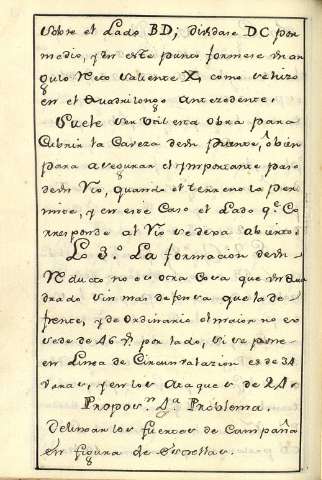 sobre el Lado BD; dividase DC por
medio, y en este punto formese un an
gulo Recto saliente X, como se hizo
en el quadrilongo antecedente.
Suele ser util esta obra para
Cubrir la Caveza de un puente, ô bien
para asegurar el ymportante paso
de un Rio, quando el terreno lo per
mite, y en este Caso el Lado q.e Co
rresponde al Rio se dexa abierto.
Lo 3.º La formacion de un
Reducto no es otra Cosa que un Qua
drado sin mas defensa que la de
frente, y de ordinario el maior no ex
cede de 46 v.s por lado, si se pone
en Linea de Circunvalacion es de 34
varas, y en los Ataques de 24.
Propos.n 4.ª Problema.
Delinear los fuertes de Campaña
en figura de Estrellas.